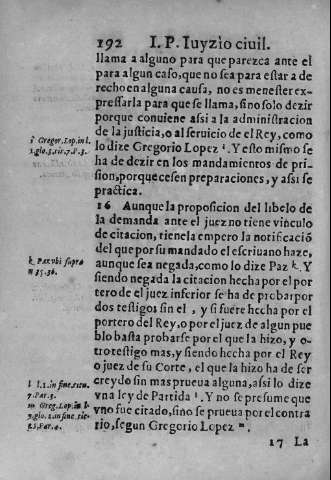 192 I. P. Iuyzio ciuil.
llama a alguno para que parezca ante el
para algun caso, que no sea para estar a de
recho en alguna causa, no es menester ex-
pressarla para que se llama, sino solo dezir
porque conuiene assi a la administracion
de la justicia, o al seruicio de el Rey, como
lo dize Gregorio Lopez i. Y esto mismo se
ha de dezir en los mandamientos de pri-
sion, porque cesen preparaciones, y assi se
practica.
i Gregor. Lop. in l.
1. glo. 5. tit. 7. P. 3.
16 Aunque la proposicion del libelo de
la demanda ante el juez no tiene vinculo
de citacion, tienela empero la notificaciõ
del que por su mandado el escriuano haze,
aunque sea negada, como lo dize Paz k. Y
siendo negada la citacion hecha por el por
tero de el juez inferior se ha de probar por
dos testigos sin el, y si fuere hecha por el
portero del Rey, o por el juez de algun pue
blo basta probarse por el que la hizo, y o-
tro testigo mas, y siendo hecha por el Rey
o juez de su Corte, el que la hizo ha de ser
creydo sin mas prueua alguna, asi lo dize
vna ley de Partida l. Y no se presume que
vno fue citado, sino se prueua por el contra
rio, segun Gregorio Lopez m.
k Paz vbi supra
n 35. 36.
l l. 1. in fine, titu.
7. Par. 3.
m Greg. Lop. in l.
17 La